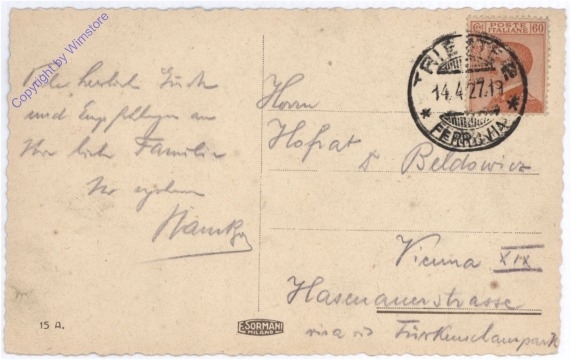 Copyright by Wimstore
Viele herzlich Grüße
und Empfehlungen an
Ihre liebe Familie
Ihr
Herrn
Hofrat Dr Beldowicz
Vienna XIX
Hasenauerstrasse
vis a vis Türkenschanzpark
POSTE
ITALIANE
60
TRIESTE 12
14.4.27.19
* FERROVIA *
15 A.
F. SORMANI
MILANO